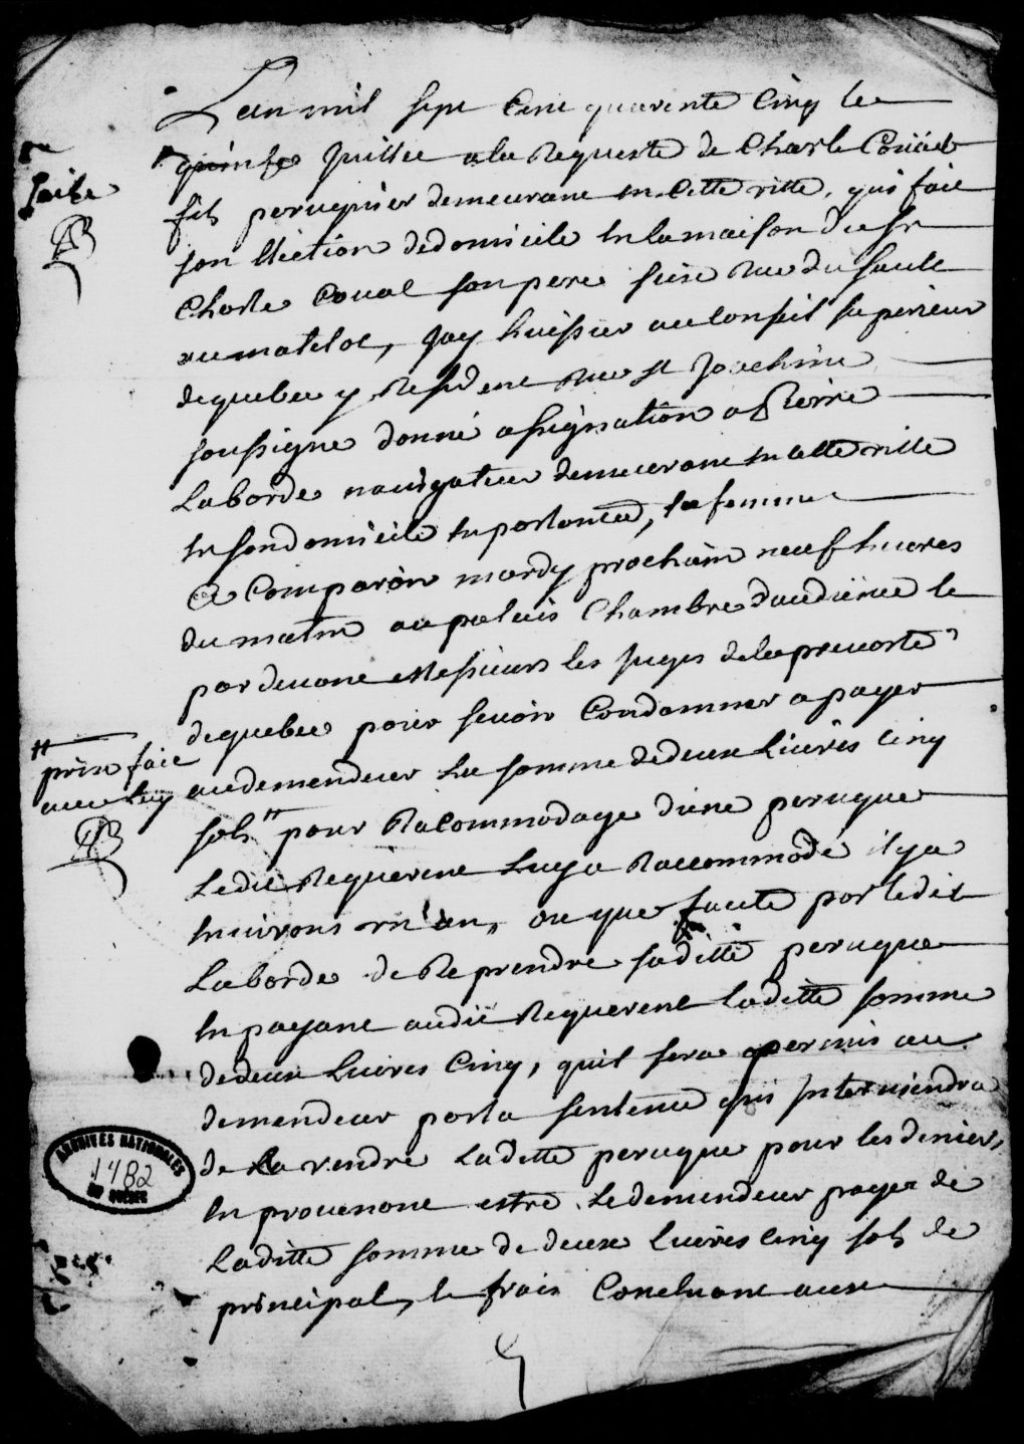 Lan mil sept Cent quarente Cinq le
quinse Juillet a la Requeste de Charle Coüab
fils peruquier demeurant en Cette ville, qui fait
son Election de domicile en la maison du Sr
Charle Coual son pere sise Rue du Sault
au matelot, Jay huissier au Conseil superieur
de quebec y Resident Rue St Joachim
soussigne donné assignation a Pierre
Laborde navigateur demeurant en cette ville
en son domicile en parlant a, sa femme
a Comparoir mardy prochain neuf heures
du matin au palais Chambre daudience le
par devant Messieurs les Juges de la prevosté
de quebec pour sevoir Condamner a payer
prix fait
avec luy
au demendeur La somme de deux Livres Cinq
sols # pour Racommodage dune peruque
Ledit Requerent Luy a Raccommodé il y a
Environs un an, ou que faute par ledit
Laborde de Reprendre saditte peruque
En payant audit Requerent Laditte somme
de deux Livres Cinq, quil sera permis au
demendeur par la sentence qui Interviendra
de la vendre Laditte peruque pour les deniers
En provenant estre Le demendeur payer de
Laditte somme de deux Livres Cinq sols de
principal, le frais Concluant aux
ARCHIVES NATIONALES
1482
DU QUÉBEC